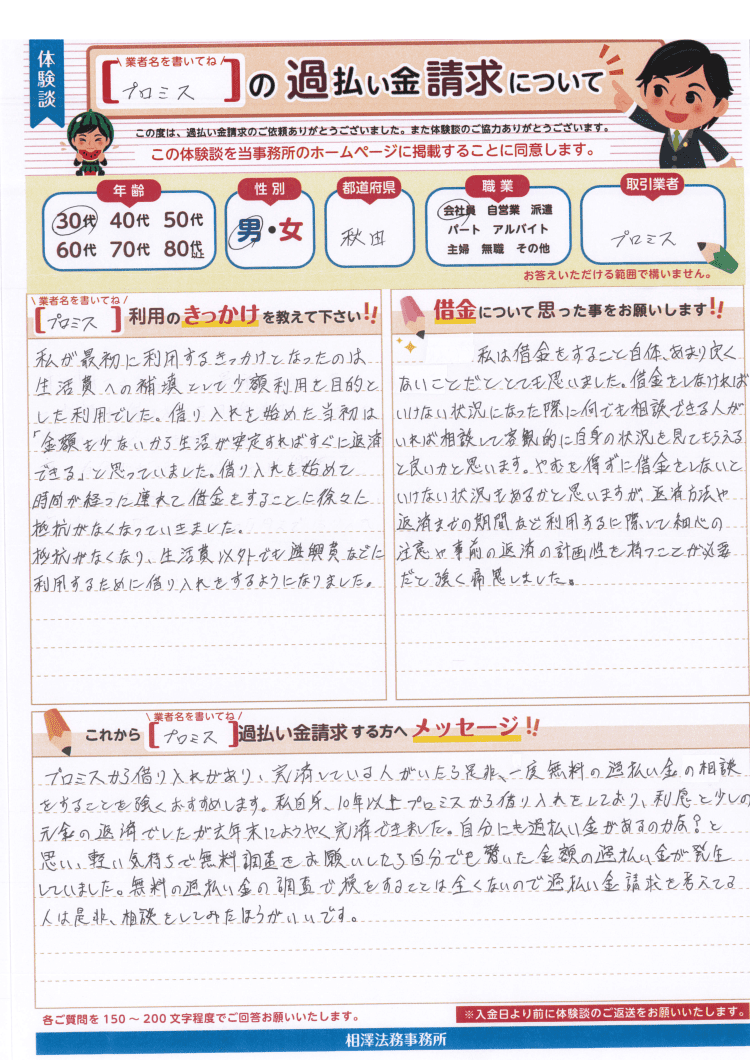 体験談
\ 業者名を書いてね /
[プロミス]の過払い金請求について
この度は、過払い金請求のご依頼ありがとうございました。また体験談のご協力ありがとうございます。
この体験談を当事務所のホームページに掲載することに同意します。
年齢
30代 40代 50代
60代 70代 80代以上
性別
男・女
都道府県
秋田
職業
会社員 自営業 派遣
パート アルバイト
主婦 無職 その他
取引業者
プロミス
お答えいただける範囲で構いません。
\ 業者名を書いてね /
[プロミス]利用のきっかけを教えて下さい!!
私が最初に利用するきっかけとなったのは
生活費への補填として少額利用を目的と
した利用でした。借り入れを始めた当初は
「金額も少ないから生活が安定すればすぐに返済
できる」と思っていました。借り入れを始めて
時間が経つに連れて借金をすることに徐々に
抵抗がなくなっていきました。
抵抗がなくなり、生活費以外でも遊興費などに
利用するために借り入れをするようになりました。
借金について思った事をお願いします!!
私は借金をすること自体、あまり良く
ないことだととても思いました。借金をしなければ
いけない状況になった際に何でも相談できる人が
いれば相談して客観的に自身の状況を見てもらえる
と良いかと思います。やむを得ずに借金をしないと
いけない状況もあるかと思いますが、返済方法や
返済までの期間など利用するに際して細心の
注意や事前の返済の計画性を持つことが必要
だと強く痛感しました。
\ 業者名を書いてね /
これから[プロミス]過払い金請求する方へメッセージ!!
プロミスから借り入れがあり、完済している人がいたら是非、一度無料の過払い金の相談
をすることを強くおすすめします。私自身、10年以上プロミスから借り入れをしており、利息と少しの
元金の返済でしたが去年末にようやく完済できました。自分にも過払い金があるのかな?と
思い、軽い気持ちで無料調査をお願いしたら自分でも驚いた金額の過払い金が発生
していました。無料の過払い金の調査で損をすることは全くないので過払い金請求を考えてる
人は是非、相談をしてみたほうがいいです。
各ご質問を150～200文字程度でご回答お願いいたします。
※入金日より前に体験談のご返送をお願いいたします。
相澤法務事務所